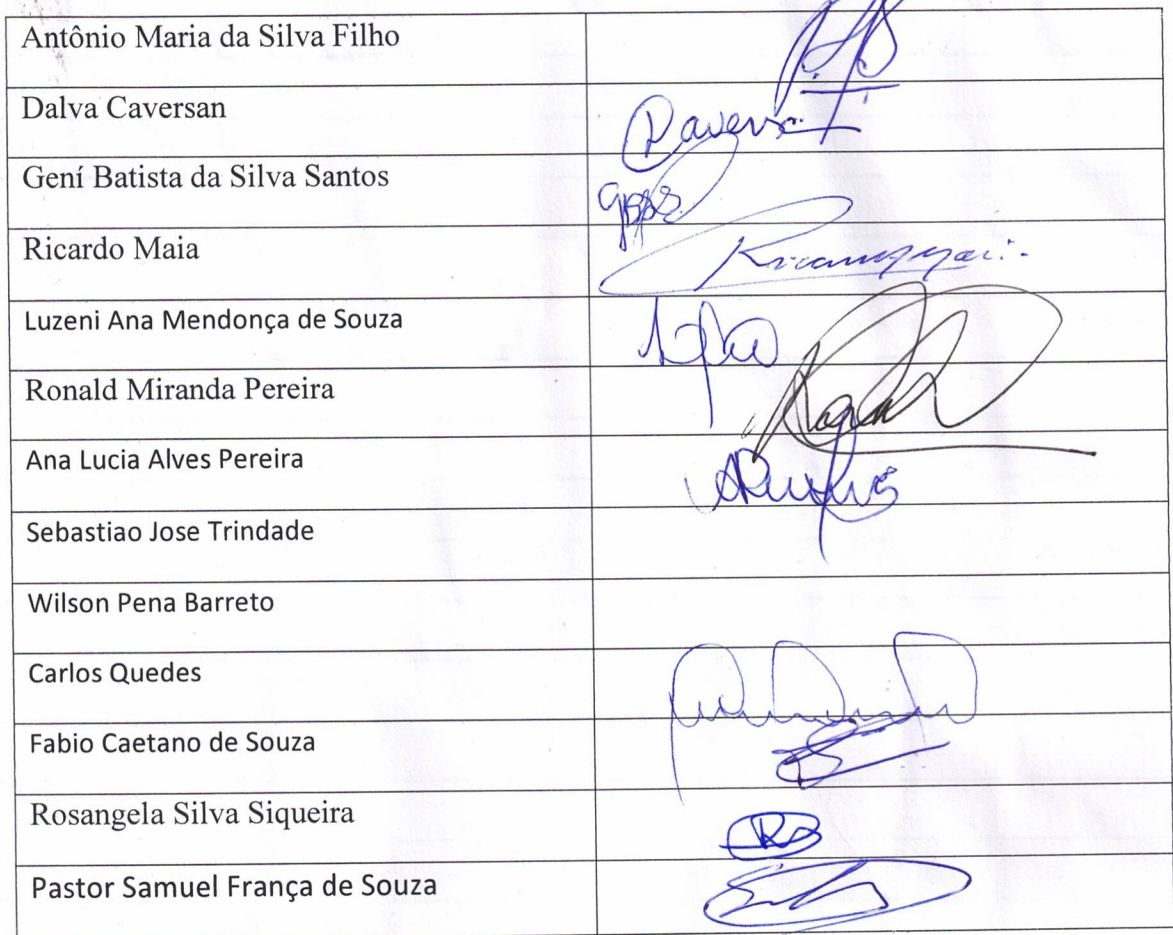 Antônio Maria da Silva Filho
Dalva Caversan
Gení Batista da Silva Santos
Ricardo Maia
Luzeni Ana Mendonça de Souza
Ronald Miranda Pereira
Ana Lucia Alves Pereira
Sebastiao Jose Trindade
Wilson Pena Barreto
Carlos Quedes
Fabio Caetano de Souza
Rosangela Silva Siqueira
Pastor Samuel França de Souza